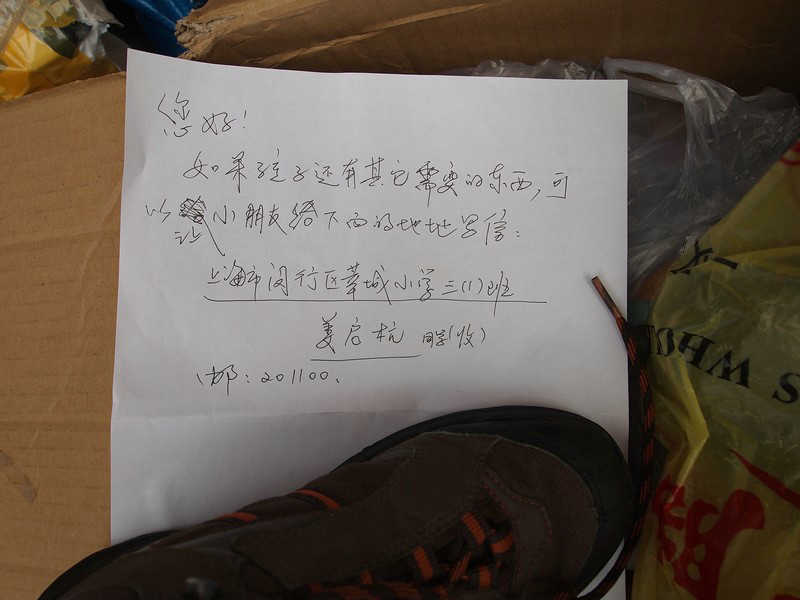 您好!
如果孩子还有其它需要的东西,可
以让小朋友给下面的地址写信:
上海市闵行区莘城小学三(1)班
姜启杭 同学(收)
邮:201100.
S WHO